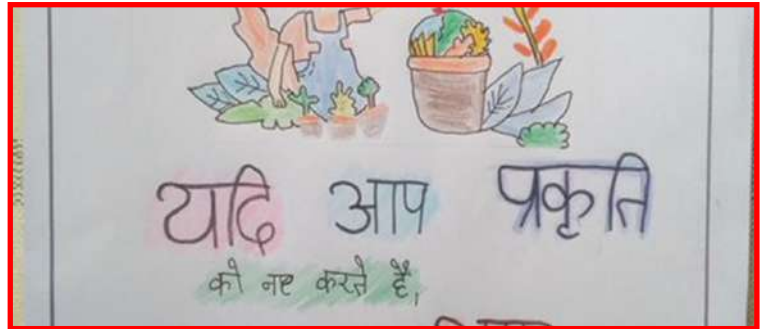 यदि आप प्रकृति
को नष्ट करते है,